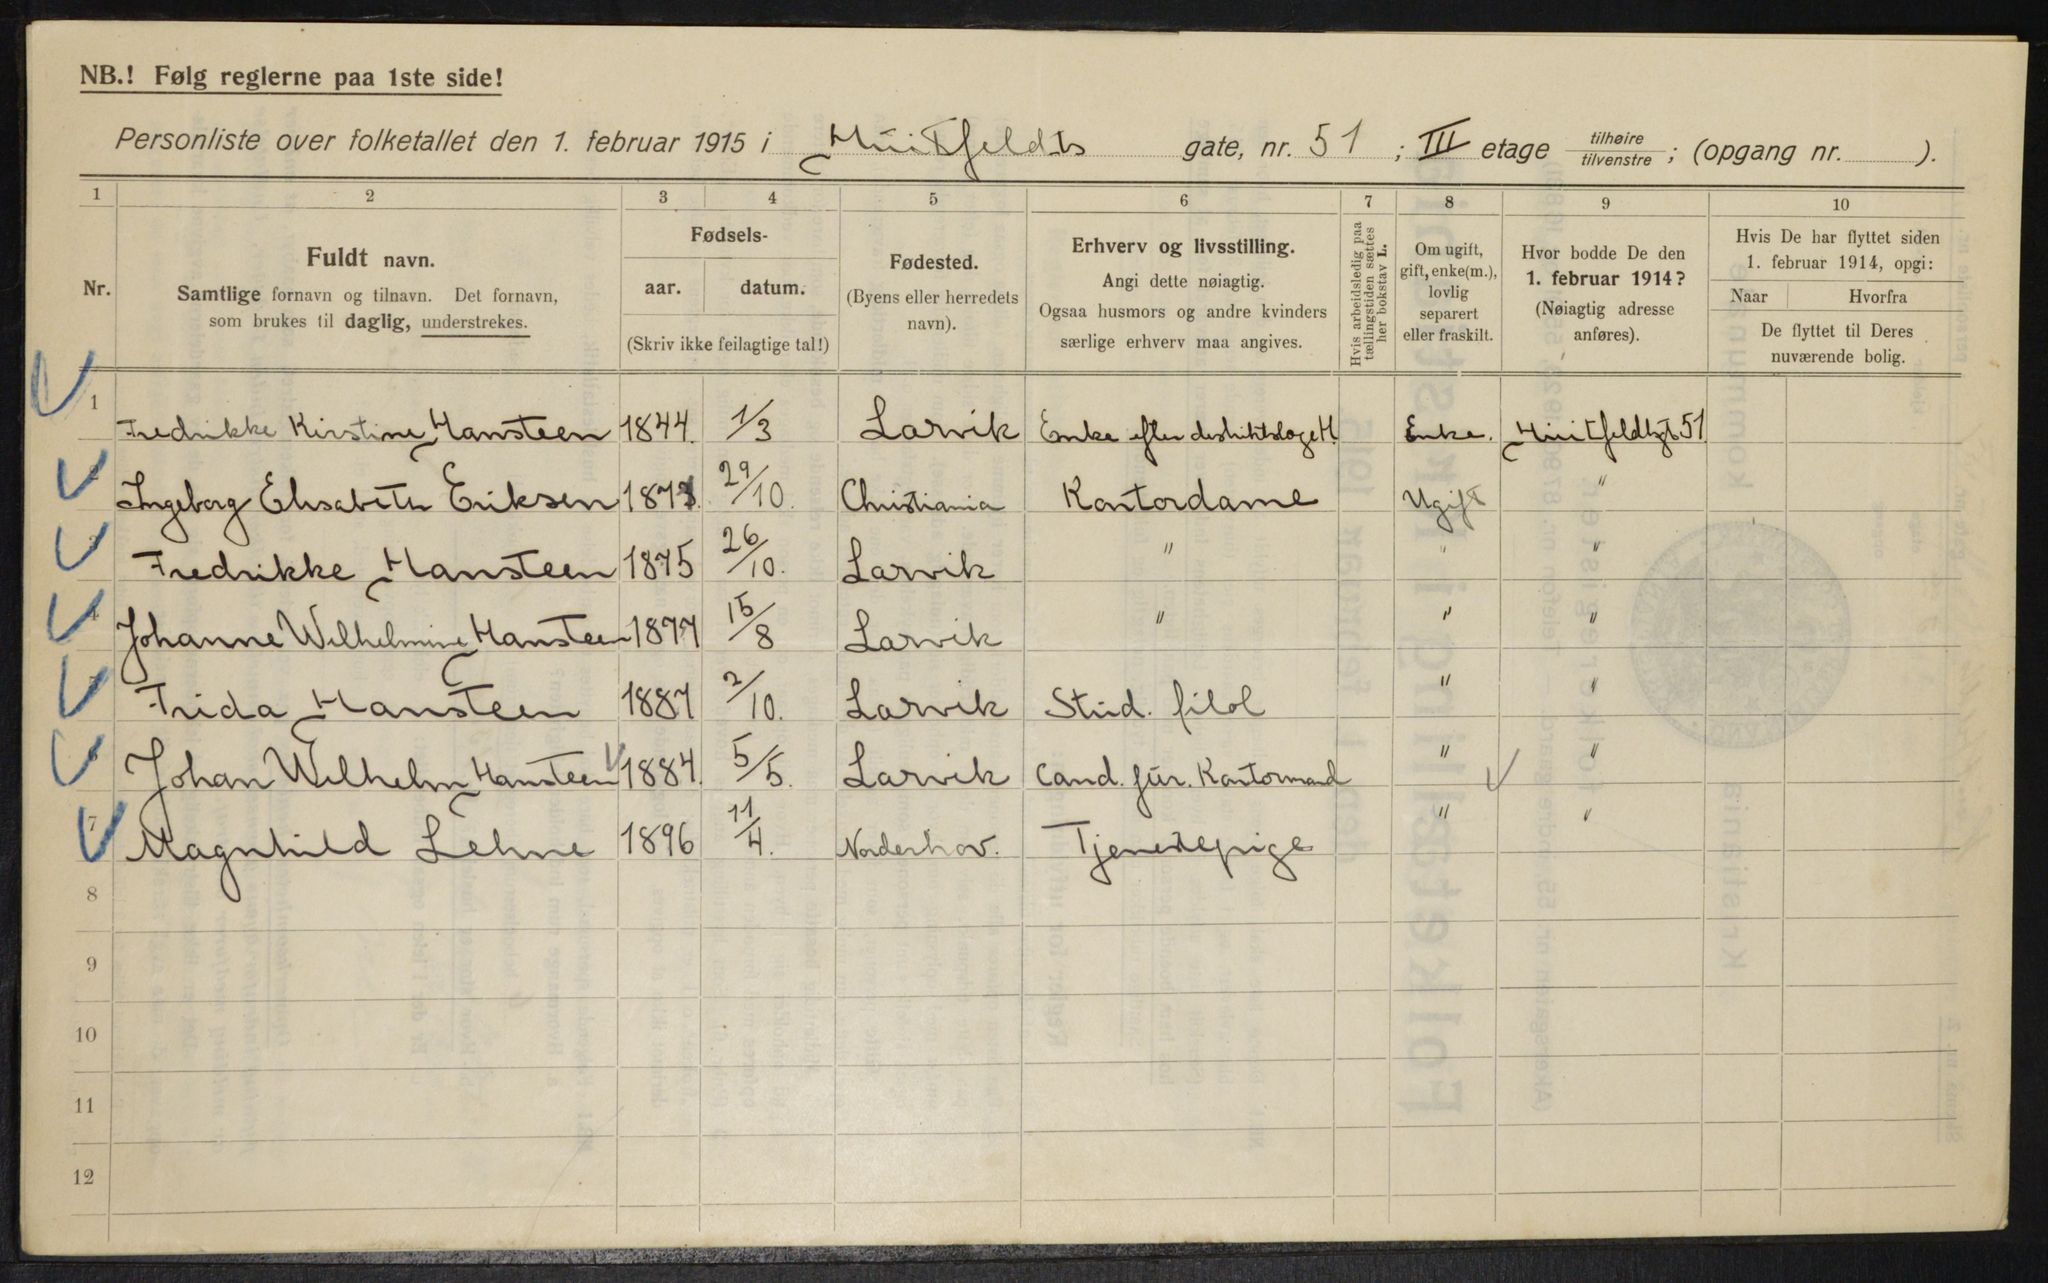 NB.! Følg reglerne paa 1ste side!
Personliste over folketallet den 1. februar 1915 i Huitfeldts gate, nr. 51 ; III etage tilhøire/tilvenstre ; (opgang nr. ).
1 2 3 4 5 6 7 8 9 10
Nr.
Fuldt navn.
Samtlige fornavn og tilnavn. Det fornavn,
som brukes til daglig, understrekes.
Fødsels-
aar. datum.
(Skriv ikke feilagtige tal!)
Fødested.
(Byens eller herredets
navn).
Erhverv og livsstilling.
Angi dette nøiagtig.
Ogsaa husmors og andre kvinders
særlige erhverv maa angives.
Hvis arbeidsledig paa
tællingstiden sættes
her bokstav L.
Om ugift,
gift, enke(m.),
lovlig
separert
eller fraskilt.
Hvor bodde De den
1. februar 1914?
(Nøiagtig adresse
anføres).
Hvis De har flyttet siden
1. februar 1914, opgi:
Naar Hvorfra
De flyttet til Deres
nuværende bolig.
1 Fredrikke Kirstine Hansteen 1844. 1/3 Larvik Enke efter H. Enke. Huitfeldtgt 51
Ingeborg Elisabeth Eriksen 29/10. Christiania Kontordame Ugift "
Fredrikke Hansteen 1875 26/10. Larvik " " "
Johanne Wilhelmine Hansteen 1877 15/8 Larvik " " "
Frida Hansteen 1887 2/10. Larvik Stud. filol " "
Johan Wilhelm Hansteen 1884. 5/5. Larvik Cand. jur. Kontormand " "
7 Magnhild Lehne 1896 11/4. Norderhov. Tjenestepige " "
8
9
10
11
12